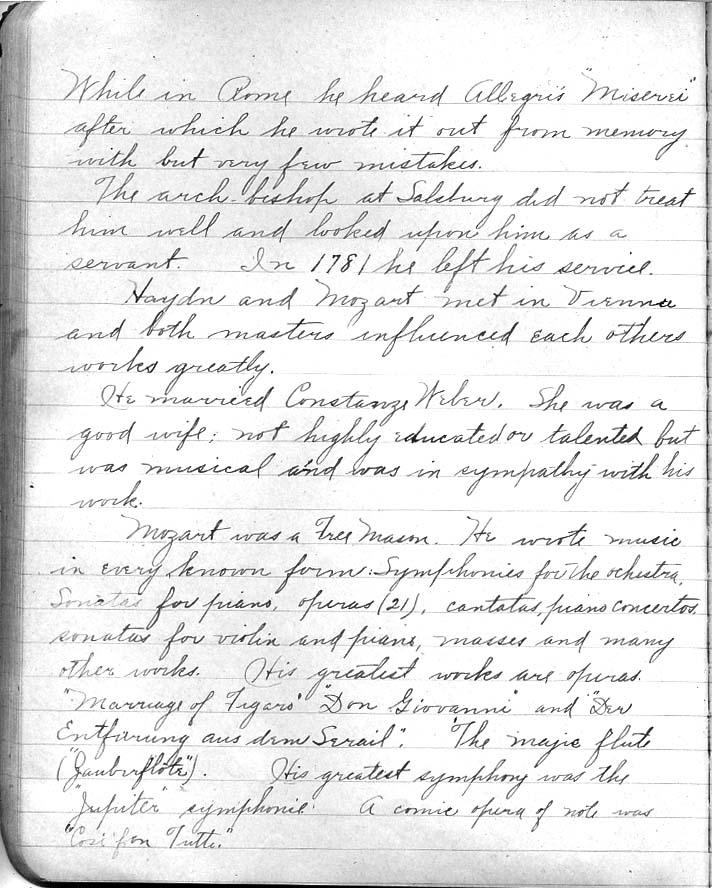 While in Rome he heard Allegri's "Miserei"
after which he wrote it out from memory
with but very few mistakes.
The arch-bishop at Salsburg did not treat
him well and looked upon him as a
servant. In 1781 he left his service.
Haydn and Mozart met in Vienna
and both masters influenced each others
works greatly.
He married Constanze Weber. She was a
good wife; not highly educated or talented but
was musical and was in sympathy with his
work.
Mozart was a Free Mason. He wrote music
in every known form: Symphonies for the ochestra,
Sonatas for piano, operas (21), cantatas, piano concertos,
sonatas for violin and piano, masses and many
other works. His greatest works are operas.
"Marriage of Figaro" "Don Giovanni" and "Der
Entfürung aus dem Serail". "The majic flute
("Zauberflöte"). His greatest symphony was the
"Jupiter" symphonie. A comic opera of note was
"Cosi fan Tutti."